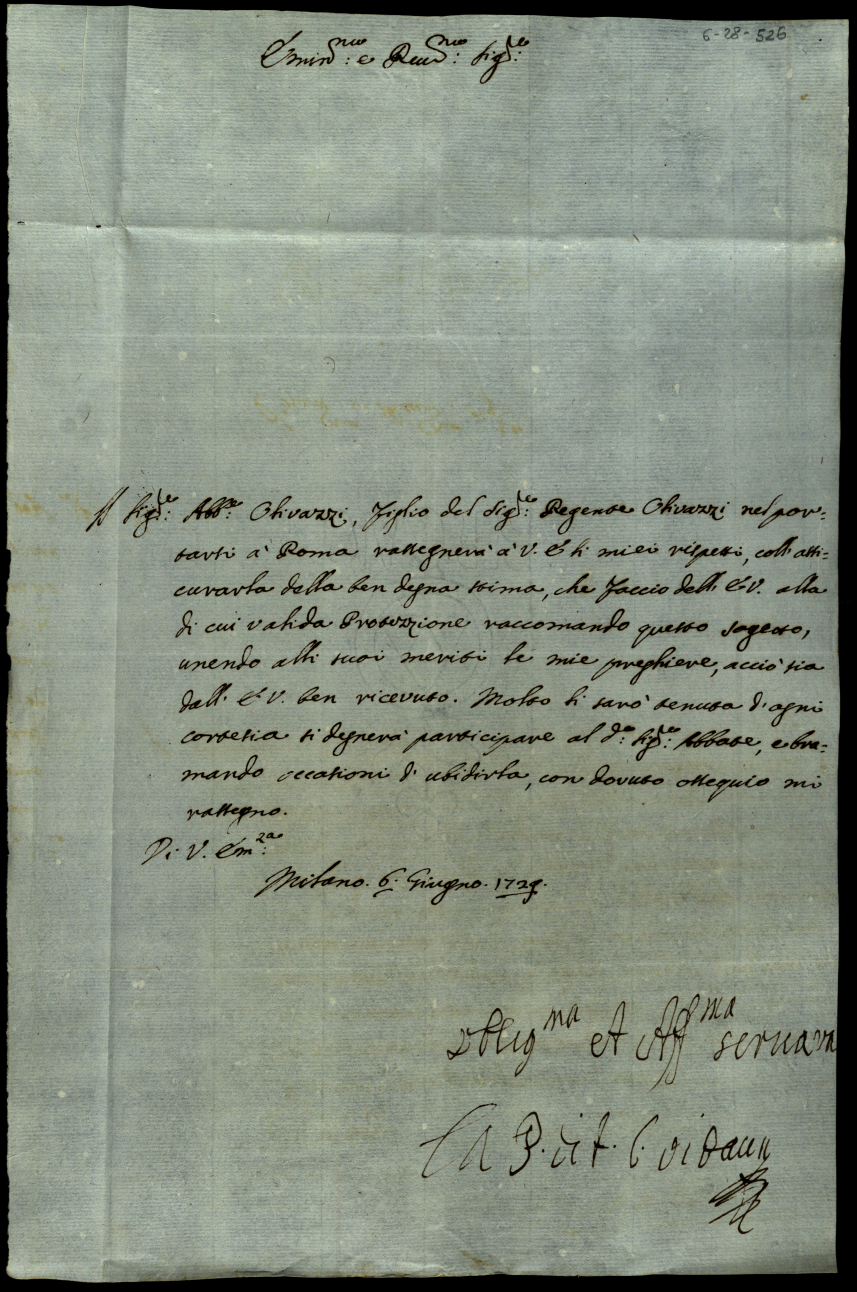 6-28-526
Emin:mo e Reud:mo Sig:re
Il Sig:re Abb:e Olivazzi, Figlio del Sig:re Regente Olivazzi nel por=
tarsi à Roma rassegnerà à V. E. li miei rispetti, coll'assi=
curarla della ben degna stima, che faccio dell'E.V. alla
di cui valida Protezzione raccomando questo sogetto,
unendo alli suoi meriti le mie preghiere, acciò sia
dall'E.V. ben ricevuto. Molto li sarò tenuta d'ogni
cortesia si degnerà participare al d:o Sig:re Abbate, e bra=
mando occasioni d'ubidirla, con dovuto ossequio mi
rassegno.
Di V. Em:za
Milano. 6. Giugno. 1729.
Oblig ma et Aff ma serua
La P. di